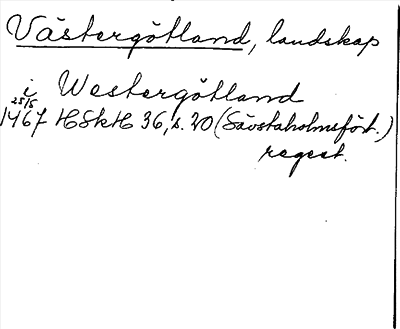 Västergötland, landskap
i Westergötland
25/5
1467 HSkH 36, s. 20 (Sävstaholmsfört.)
regest.